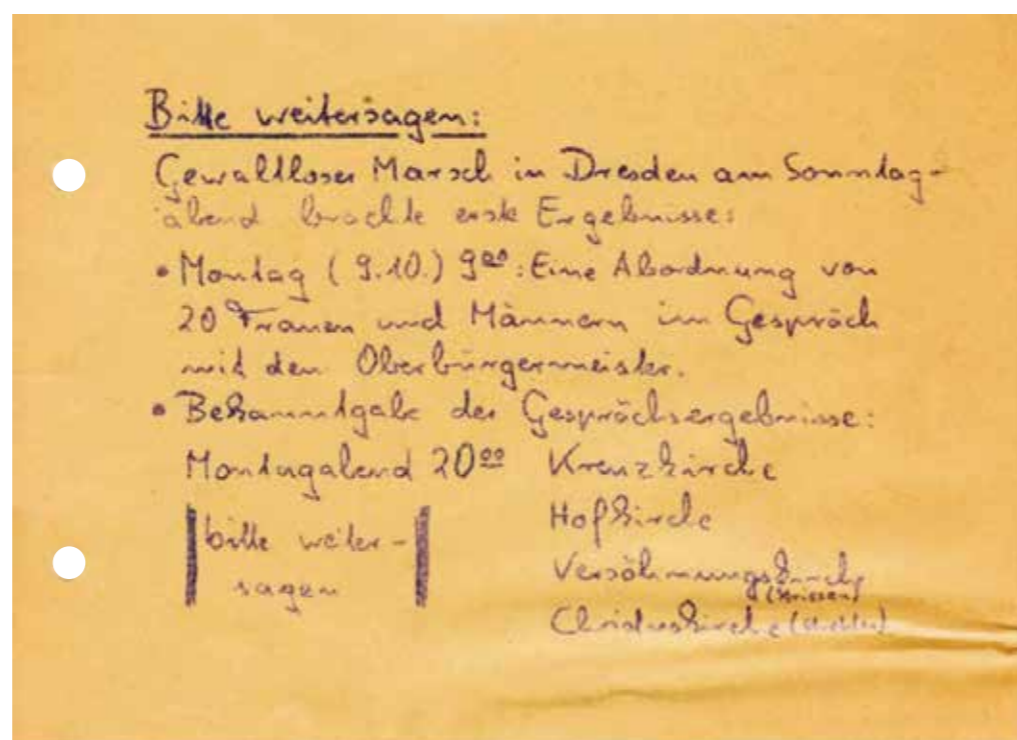 Bitte weitersagen:
Gewaltloser Marsch in Dresden am Sonntag-
abend brachte erste Ergebnisse:
• Montag (9.10.) 9⁰⁰: Eine Abordnung von
20 Frauen und Männern im Gespräch
mit dem Oberbürgermeister.
• Bekanntgabe der Gesprächsergebnisse:
Montagabend 20⁰⁰ Kreuzkirche
Hofkirche
bitte weiter-
sagen
Versöhnungskirche
(Striesen)
Christuskirche (Strehlen)